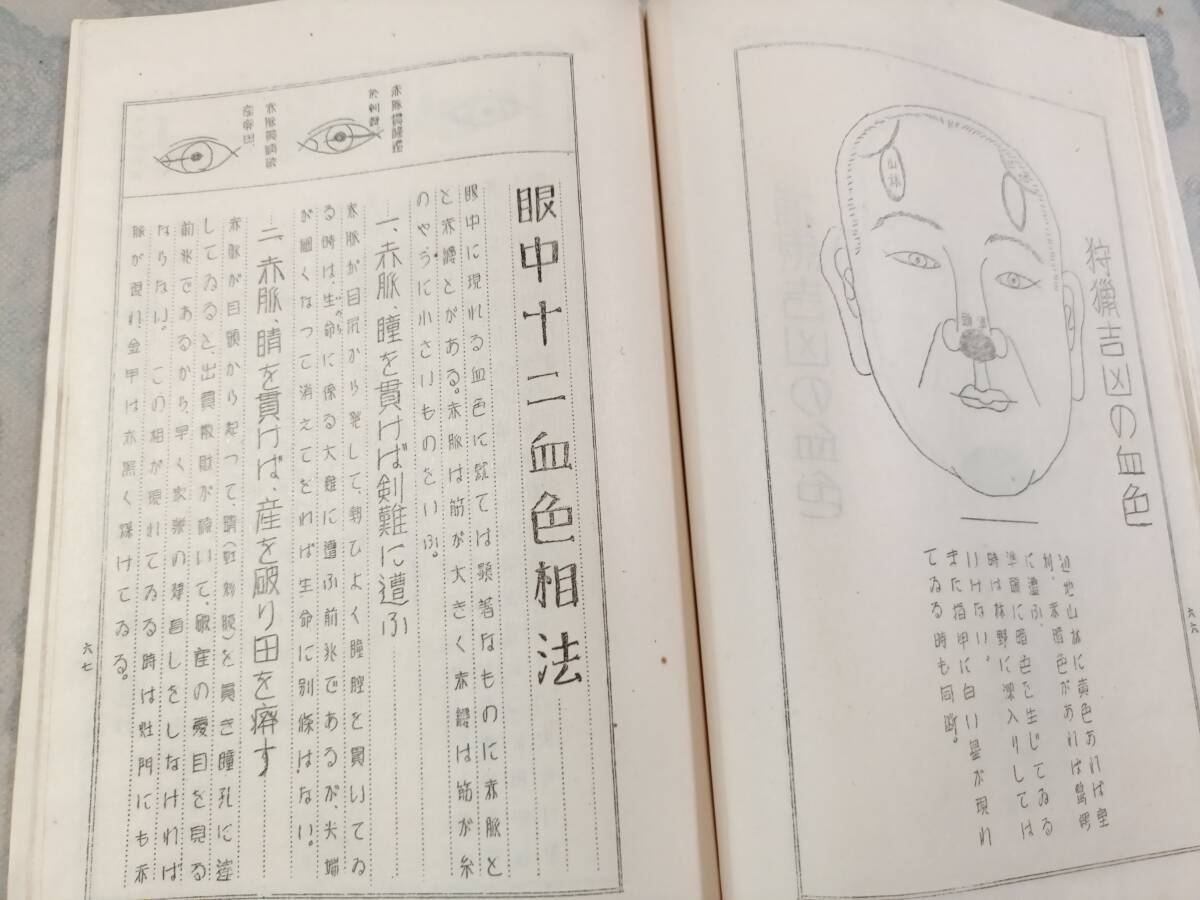 狩獵吉凶の血色
山林
辺地山林に黄色あれば皇
利、黒暗色があれば鳥
に遭ふ。
準頭に暗色を生じてゐる
時は林野に深入りしては
いけない。
また指甲に白い星が現れ
てゐる時も同断。
六六
眼中十二血色相法
眼中に現れる血色に就ては顕著なものに赤脈と
と赤縷とがある。赤脈は筋が大きく赤縷は筋が糸
のやうに小さいものをいふ。
一、赤脈、瞳を貫けば剣難に遭ふ
赤脈が目尻から発して、勢ひよく瞳腔を貫いてゐ
る時は、生命に係る大難に遭ふ前兆であるが、尖端
が細くなつて消えてをれば生命に別條はない。
二、赤脈、睛を貫けば、産を破り田を癖す
赤脈が目頭から起つて、睛(虹彩膜)を貫き瞳孔に達
してゐると、出費散財が続いて、破産の憂目を見る
前兆であるから、早く家業の建直しをしなければ
ならない。この相が現れてゐる時は灶門にも赤
脈が現れ、金甲は赤黒く煤けてゐる。
六七